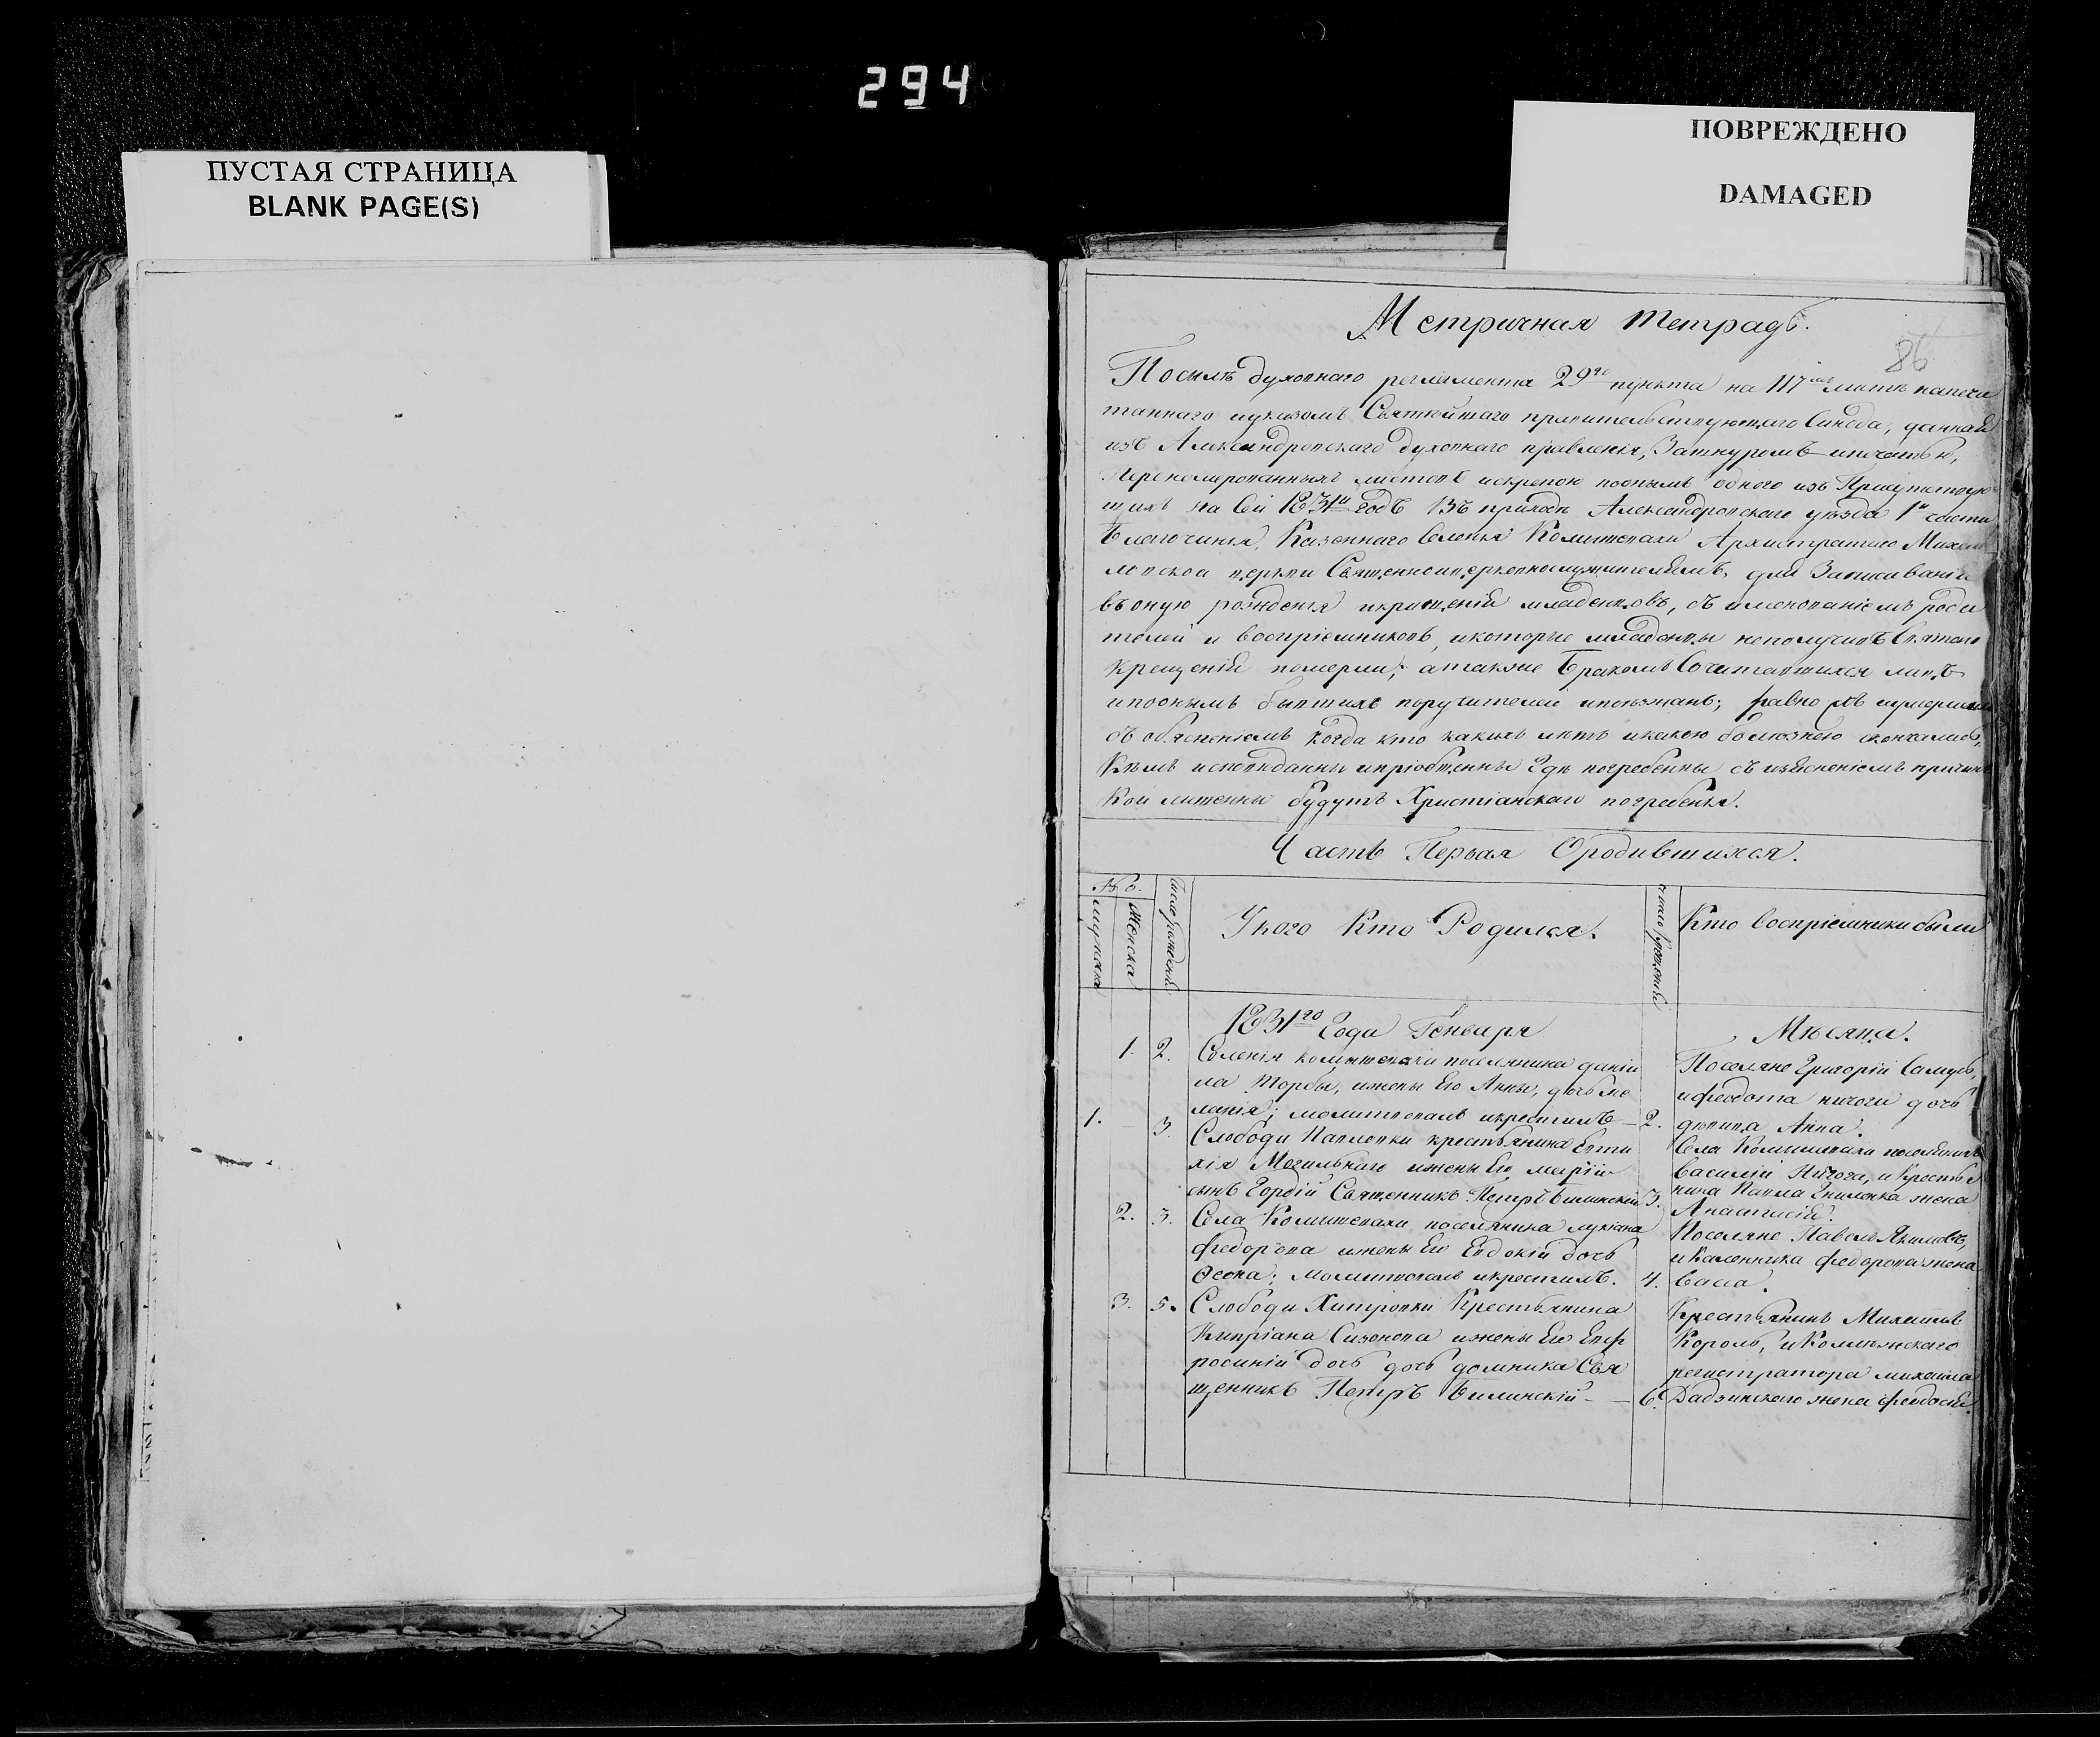 294
ПУСТАЯ СТРАНИЦА
BLANK PAGE(S)
ПОВРЕЖДЕНО
DAMAGED
Метричная тетрадь.
86
Посылѣ духовнаго регламента 29го пункта на 117 листѣ напеча
таннаго указомъ Святѣйшаго правительствующаго Синода, данная
изъ Александровскаго духовнаго правленія, за шнуромъ и печатью,
перенумерованныхъ листовъ и скрепою по онымъ одного изъ Присутствую
щихъ на сей 1831й годъ въ приходъ Александровскаго уѣзда 1й части
Благочинія, Казеннаго Селенія Комышевахи Архистратиго Михаи
ловской церкви Священноицерковнослужителямъ, для Записыванія
въ оную рожденія и крещенія младенцовъ, съ именованіемъ роди
телей и воспріемниковъ, и которые младенцы неполучивъ Святаго
крещенія померли; а также Бракомъ Сочитавшихся лицъ
и по онымъ бывшихъ поручителей и поезжанъ; равно и
съ объясненіемъ когда кто какихъ лѣтъ и какою болезнею скончались,
Кѣмъ исповѣданны и пріобщенны Где погребенны съ изъясненіемъ причинъ
Кои лишенны будутъ Христіанскаго погребенія.
Часть Первая Ородившихся.
№ о.
мужска
Женска
Число рожденія
У кого Кто Родился.
число крещенія
Кто воспріемники были
1831го Года Генваря
Мѣсяца.
1. 2. Селенія комышевахи поселянина даніи
ла Торбы, и жены Его Анны, дочь ме
ланія; молитвовалъ и крестилъ 2.
Поселяне Григорій
и федота ничоги дочь
дѣвица Анна.
1. 3. Слободи Павловки крестьянина Евти
хія Могильнаго и жены Его маріи
сынъ Гордій Священникъ Петръ Билинскій 3.
Села Комышевахи поселянинъ
Василій Ничога, и Крестья
нина Павла жена
Анастасія.
2. 3. Села Комышевахи поселянина лукіана
федорова и жены Его Евдокіи дочь
Ѳеона; молитвовалъ и крестилъ. 4.
Поселяне Павелъ Якимовъ,
и Каленника федорова жена
Васса.
3. 5. Слободи Хитровки Крестьянина
Кипріана Сизонова и жены Его Евф
росиніи дочь дочь домника Свя
щенникъ Петръ Билинскій 6.
Крестьянинъ Михаилъ
Король, и Колѣжскаго
регистратора михаила
Дадзинскаго жена феодосія.